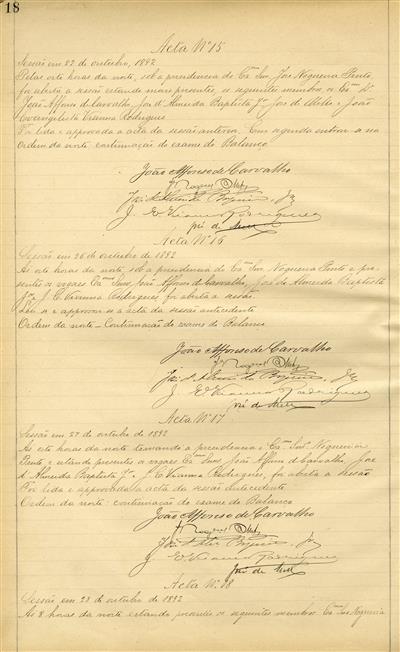 18
Acta Nº 15
Sessão em 22 de outubro, 1892
Pelas oito horas da noite, sob a presidencia do Exmo Snr. José Nogueira Pinto
foi aberta a sessão estando mais presentes, os seguintes membros, os Exmos Srs
João Affonso de Carvalho, José d'Almeida Baptista Jor José de Mello e João
Evangelista Vianna Rodrigues
Foi lida e approvada a acta da sessão anterior. Em seguida entrou-se na
Ordem da noite continuação do exame do Balanço
João Affonso de Carvalho
J. Nogueira Pinto
José d'Almeida Baptista Jr
J. E. Vianna Rodrigues
José de Mello
Acta Nº 16
Sessão em 26 de outubro de 1892
As oito horas da noite, sob a presidencia do Exmo Snr. Nogueira Pinto e pre-
sentes os vogaes Exmos Snrs João Affonso de Carvalho, José de Almeida Baptista
Jor, J. E. Vianna Rodrigues foi aberta a sessão.
Leu-se e approvou-se a acta da sessão antecedente
Ordem da noite - Continuação do exame do Balanço
João Affonso de Carvalho
J. Nogueira Pinto
José d'Almeida Baptista Jr
J. E. Vianna Rodrigues
José de Mello
Acta Nº 17
Sessão em 27 de outubro de 1892
As oito horas da noite tomando a presidencia o Exmo Snr. Nogueira
Pinto e estando presentes os vogaes Exmos Snrs João Affonso de Carvalho, José
d'Almeida Baptista Jor J. E. Vianna Rodrigues, foi aberta a sessão
Foi lida e approvada a acta da sessão antecedente
Ordem da noite: continuação do exame do Balanço
João Affonso de Carvalho
J. Nogueira Pinto
José d'Almeida Baptista Jr
J. E. Vianna Rodrigues
José de Mello
Acta Nº 18
Sessão em 28 de outubro de 1892
As 8 horas da noite estando presentes os seguintes membros Exmos Snrs Nogueira